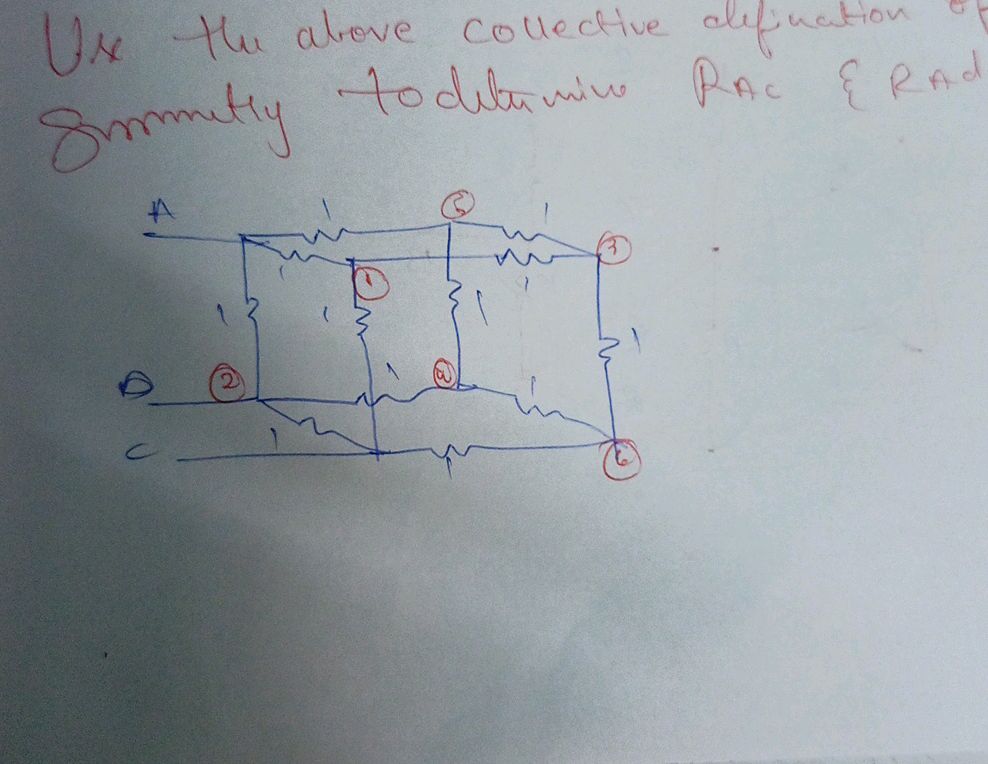 Use the above collective defination of
Symmetry to determine RAC & RAd
A
1
5
1
3
1
1
1
1
1
1
1
D
2
1
a
1
1
C
1
6